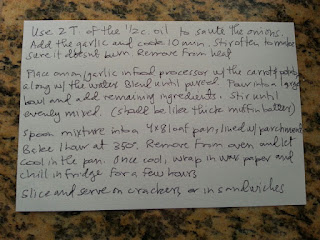 Use 2 T. of the 1/2 c. oil to saute the onions.
Add the garlic and cook 10 min. Stir often to make
sure it doesnt burn. Remove from heat
Place onion/garlic in food processor w/ the carrot & potato
along w/ the water. Blend until pureed. Pour into a large
bowl and add remaining ingredients. Stir until
evenly mixed. (should be like thick muffin batter)
Spoon mixture into a 4x8 loaf pan, lined w/ parchment
Bake 1 hour at 350°. Remove from oven and let
cool in the pan. Once cool, wrap in wax paper and
chill in fridge for a few hours
Slice and serve on crackers or in sandwiches